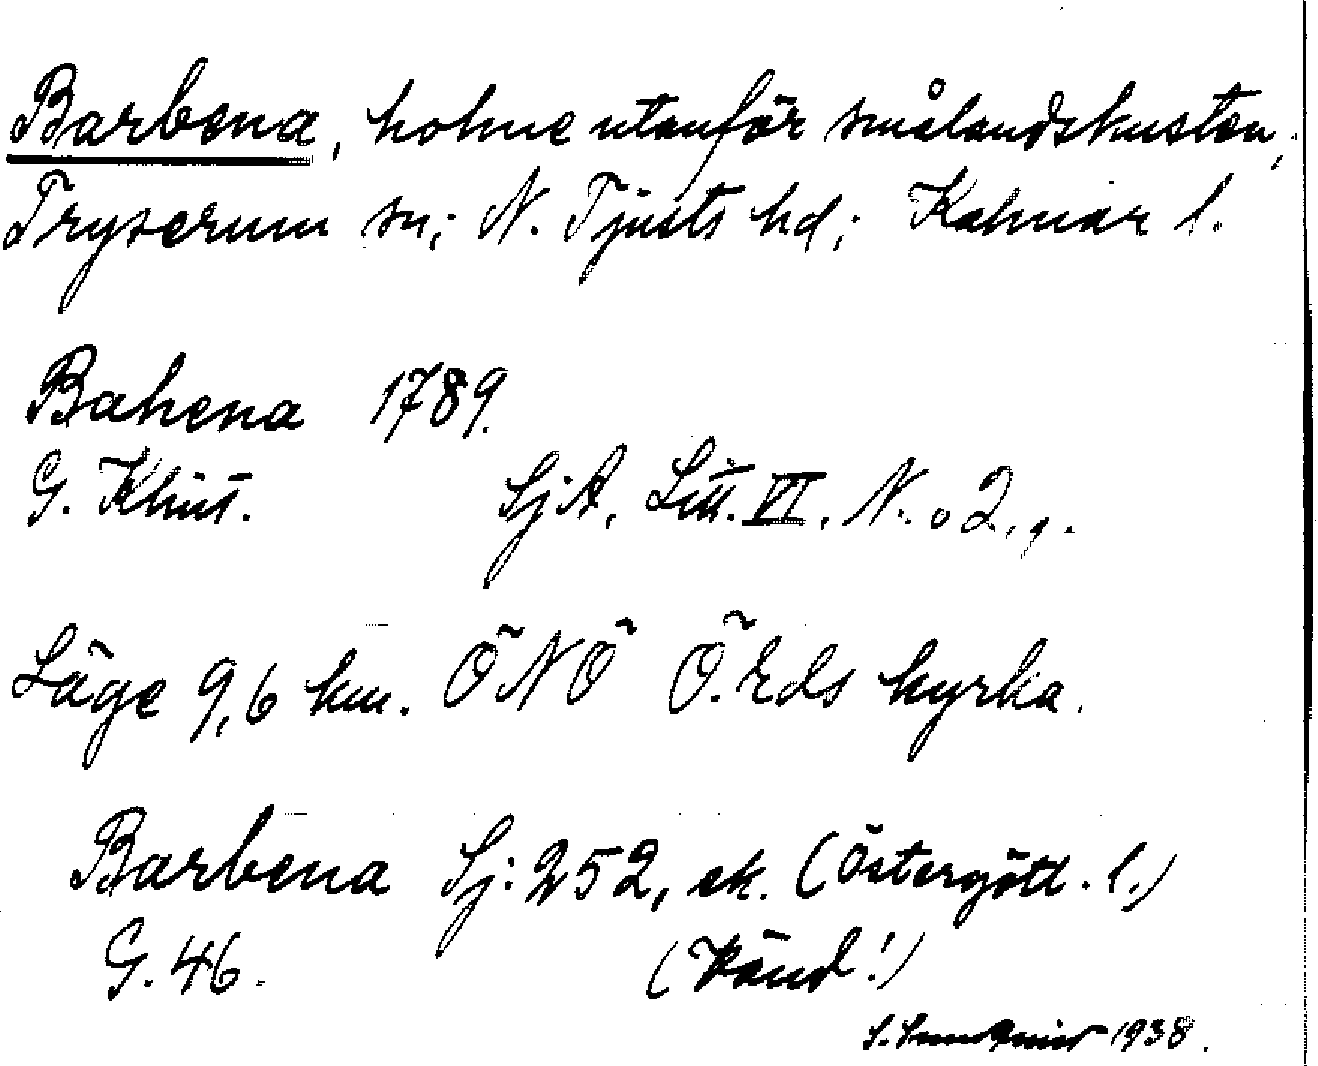 Barbena, holme utanför smålandskusten,
Tryserum sn; N. Tjusts hd; Kalmar l.
Bahena 1789.
G. Klint. SjA, Litt. VI. N:o 2.
Läge 9,6 km. ÖNÖ Ö. Eds kyrka.
Barbena Sj: 252, ek. (Östergötl. l.)
G. 46. (känd!)
1938.